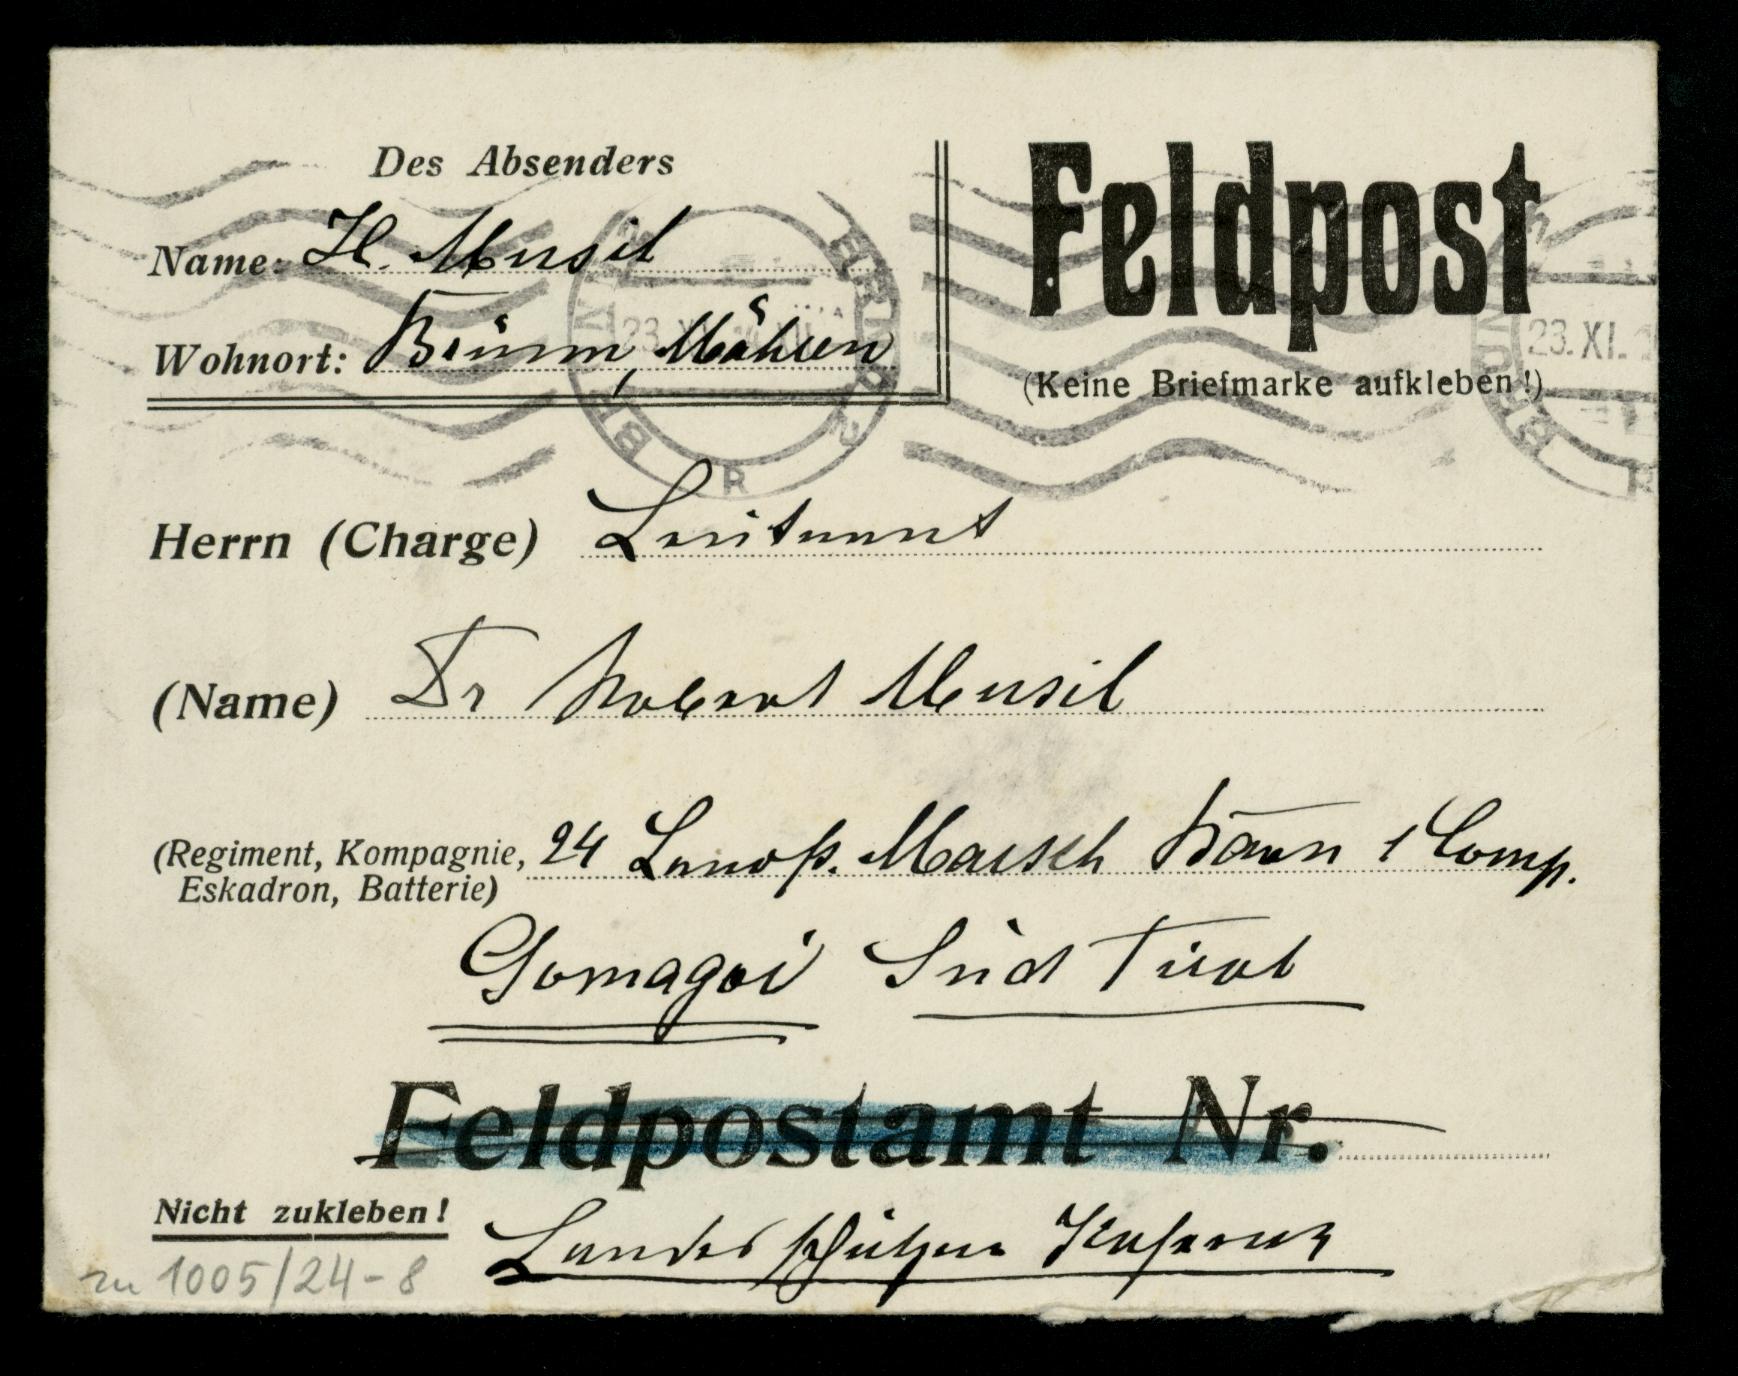 Des Absenders
Name: H. Musil
Wohnort: Brünn, Mähren
Feldpost
(Keine Briefmarke aufkleben!)
23. XI.
Herrn (Charge) Leutnant
(Name) Dr Robert Musil
(Regiment, Kompagnie, 24 Landst. Marsch Baon 1 Comp.
Eskadron, Batterie)
Gomagoi Süd Tirol
Feldpostamt Nr.
Nicht zukleben!
Landesschützen Kaserne
zu 1005/24-8